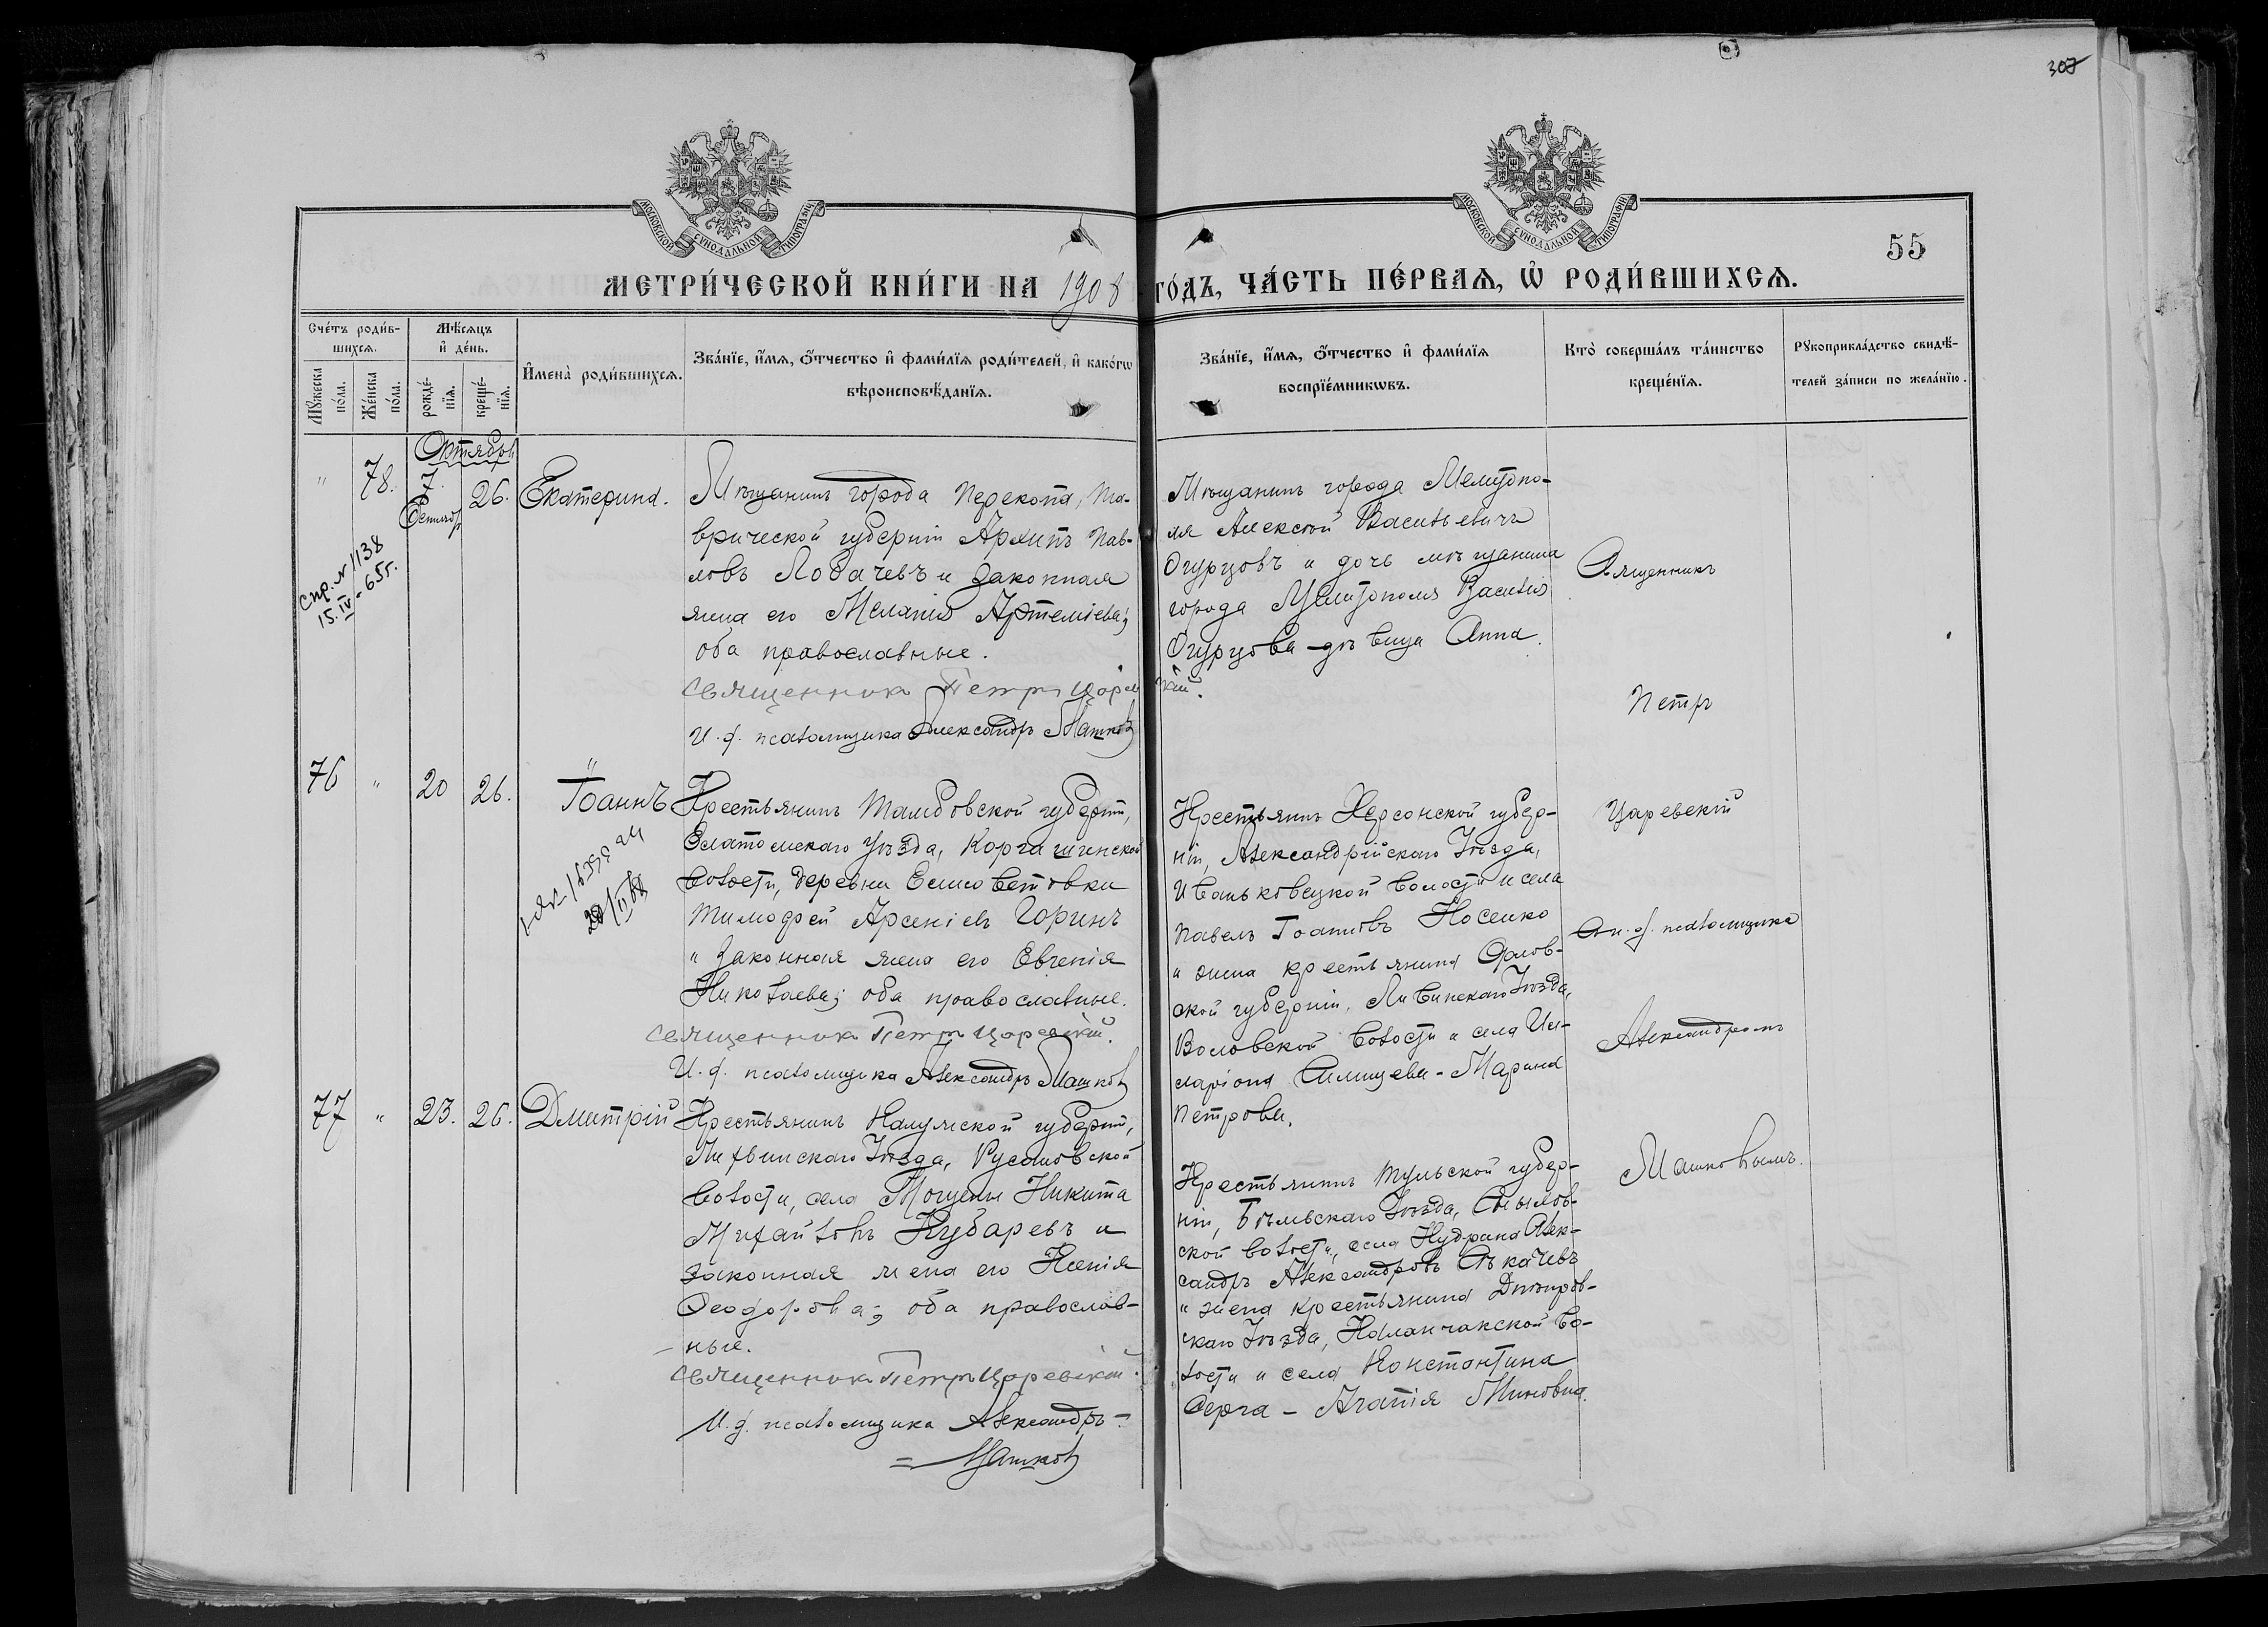 307
МОСКОВСКОЙ СУНОДАЛЬНОЙ ТИПОГРАФІИ
МОСКОВСКОЙ СУНОДАЛЬНОЙ ТИПОГРАФІИ
55
МЕТРИ́ЧЕСКОЙ КНИ́ГИ НА 1908 ГО́ДЪ, ЧА́СТЬ ПЕ́РВАѦ, Ѽ РОДИ́ВШИХСѦ.
Сче́тъ роди́в-
шихсѧ.
Мꙋ́жеска по́ла.
Же́нска по́ла.
Мѣ́сѧцъ
и҆ де́нь.
рожде́-
нїѧ.
креще́-
нїѧ.
И҆мена̀ роди́вшихсѧ.
Зва́нїе, и҆́мѧ, ѻ҆́тчество и҆ фами́лїѧ роди́телей, и҆ како́гѡ
вѣроисповѣ́данїѧ.
Зва́нїе, и҆́мѧ, ѻ҆́тчество и҆ фами́лїѧ
воспрїе́мникѡвъ.
Кто̀ соверша́лъ та́инство
креще́нїѧ.
Рꙋкоприкла́дство свидѣ́-
телей за́писи по жела́нїю.
Октябрь
" 78. 7. 26. Екатерина.
Сентябр.
Спр. № 1138
15.IV-65г.
Мѣщанинъ города Перекопа, Та-
врической губерніи Архипъ Пав-
ловъ Лобачевъ и законная
жена его Меланія Артеміева;
оба православные.
Священникъ Петръ Царевскій.
И. д. псаломщика Александръ Машковъ
Мѣщанинъ города Мелитопо-
ля Алексѣй Васильевичъ
Огурцовъ и дочь мѣщанина
города Мелитополя Василія
Огурцова дѣвица Анна.
Священникъ
Петръ
Царевскій
Съ и. д. псаломщика
Александромъ
Машковымъ.
76 " 20 26. Іоаннъ
Крестьянинъ Тамбовской губерніи,
Елатомскаго уѣзда, Каргашинской
волости, деревни Елисаветовки
Тимофей Арсеніевъ Горинъ
и законная жена его Евгенія
Николаева; оба православные.
Священникъ Петръ Царевскій.
И. д. псаломщика Александръ Машковъ
Крестьянинъ Херсонской губер-
ніи, Александрійскаго уѣзда,
Иваньковецкой волости и села
Павелъ Іоанновъ Носенко
и жена крестьянина Орлов-
ской губерніи, Ливинскаго уѣзда,
Воловской волости и села Ил-
ларіона Марина
Петрова.
77 " 23. 26. Дмитрій
Крестьянинъ Калужской губерніи,
Лихвинскаго уѣзда, Русановской
волости, села Никита
Михайловъ Кубаревъ и
законная жена его Ксенія
Феодорова; оба православ-
ные.
Священникъ Петръ Царевскій.
И. д. псаломщика Александръ -
= Машковъ
Крестьянинъ Тульской губер-
ніи, Бѣлевскаго уѣзда,
ской волости, села Кудрина Алек-
сандръ Александровъ
и жена крестьянина Днѣпров-
скаго уѣзда, Каланчакской во-
лости и села Константина
Серга - Агапія Миновна.